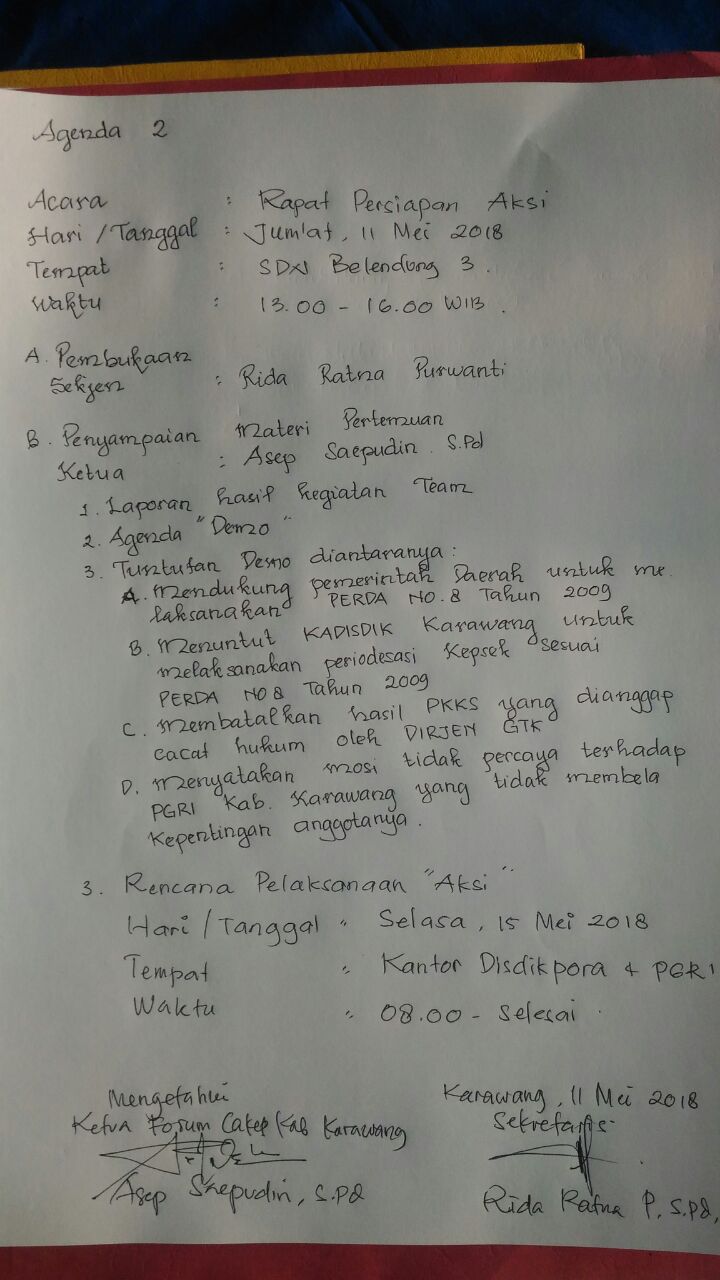 Agenda 2
Acara : Rapat Persiapan Aksi
Hari / Tanggal : Jum'at, 11 Mei 2018
Tempat : SDN Belendung 3.
Waktu : 13.00 - 16.00 WIB.
A. Pembukaan
Sekjen : Rida Ratna Purwanti
B. Penyampaian Materi Pertemuan
Ketua : Asep Saepudin. S.Pd
1. Laporan hasil kegiatan Team
2. Agenda "Demo"
3. Tuntutan Demo diantaranya :
A. Mendukung pemerintah Daerah untuk me
laksanakan PERDA NO. 8 Tahun 2009
B. Menuntut KADISDIK Karawang untuk
melaksanakan periodesasi Kepsek sesuai
PERDA NO 8 Tahun 2009
C. Membatalkan hasil PKKS yang dianggap
cacat hukum oleh DIRJEN GTK
D. Menyatakan mosi tidak percaya terhadap
PGRI Kab. Karawang yang tidak membela
Kepentingan anggotanya.
3. Rencana Pelaksanaan "Aksi"
Hari / Tanggal : Selasa, 15 Mei 2018
Tempat : Kantor Disdikpora + PGRI
Waktu : 08.00 - Selesai.
Mengetahui
Ketua Forum Cakep Kab Karawang
Asep Saepudin, S.Pd
Karawang, 11 Mei 2018
Sekretaris
Rida Ratna P, S.Pd,